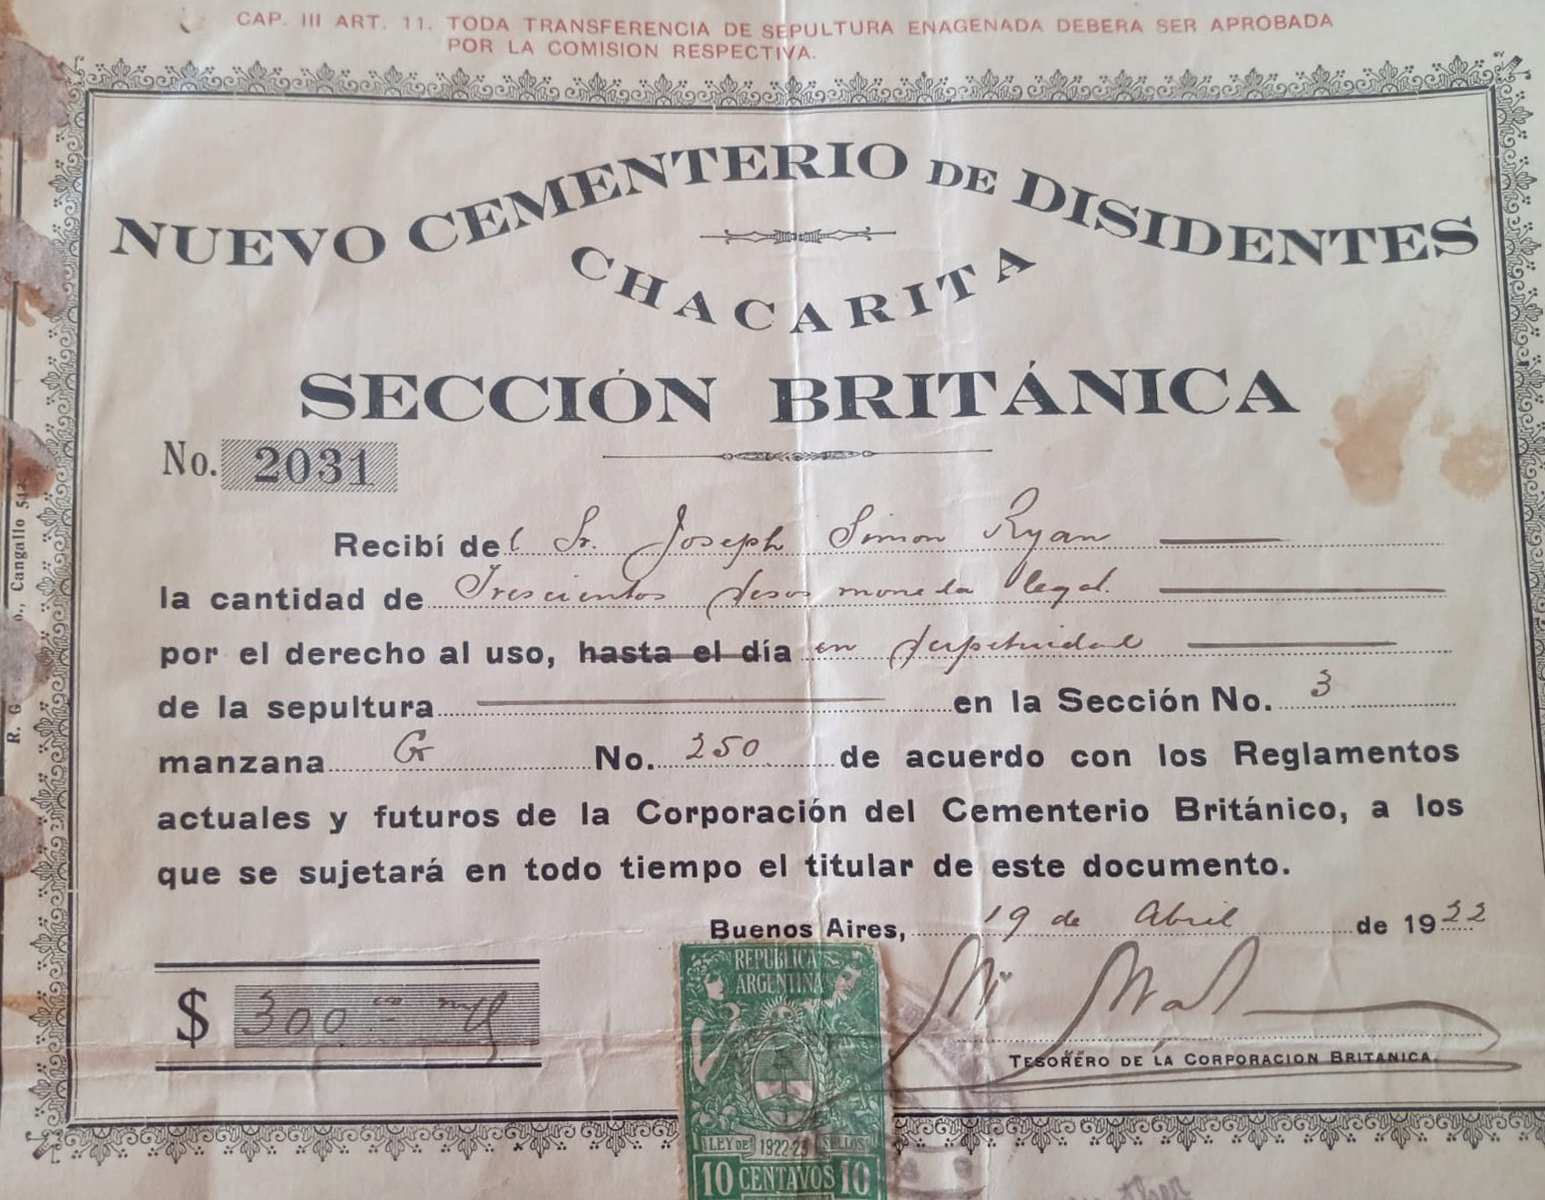 CAP. III ART. 11. TODA TRANSFERENCIA DE SEPULTURA ENAGENADA DEBERA SER APROBADA
POR LA COMISION RESPECTIVA.
NUEVO CEMENTERIO DE DISIDENTES
CHACARITA
SECCIÓN BRITÁNICA
No. 2031
Recibí del Sr. Joseph Simon Ryan
la cantidad de Trescientos pesos moneda legal.
por el derecho al uso, hasta el día en perpetuidad
de la sepultura en la Sección No. 3
manzana G No. 250 de acuerdo con los Reglamentos
actuales y futuros de la Corporación del Cementerio Británico, a los
que se sujetará en todo tiempo el titular de este documento.
Buenos Aires, 19 de Abril de 1922
$ 300 00 m/l
TESORERO DE LA CORPORACION BRITANICA.
REPUBLICA
ARGENTINA
LEY DE 1922-23 SELLOS
10 CENTAVOS 10
Cangallo